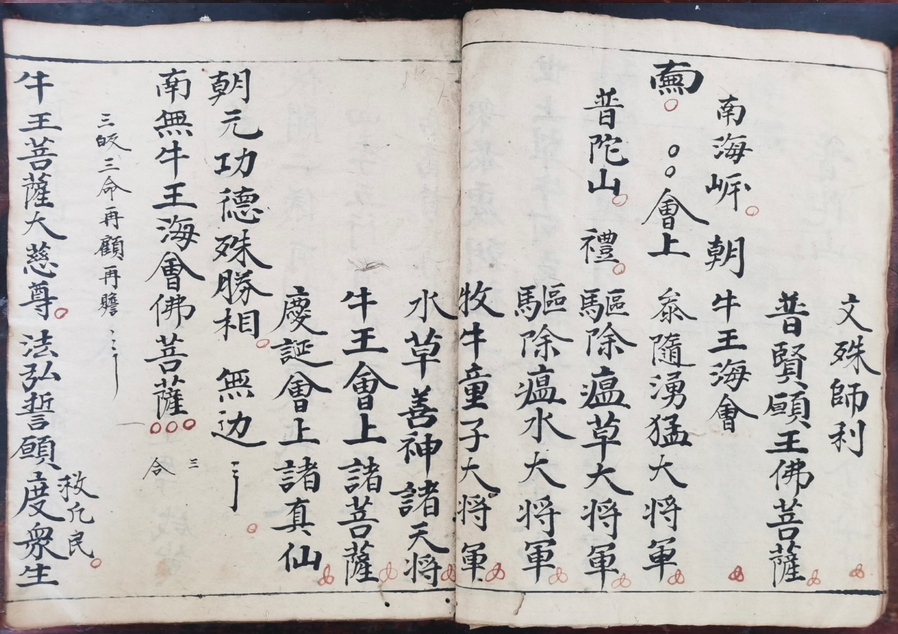 文殊師利
普賢願王佛菩薩
南海岍 朝 牛王海會
會上 叅隨湧猛大將軍
普陀山 禮 驅除瘟草大將軍
驅除瘟水大將軍
牧牛童子大將軍
水草善神諸天将
牛王會上諸菩薩
慶誕會上諸真仙
朝元功德殊勝相 無边
南無牛王海會佛菩薩 三合
三皈三命再顧再瞻
牛王菩薩大慈尊 法弘誓願度衆生
救凢民